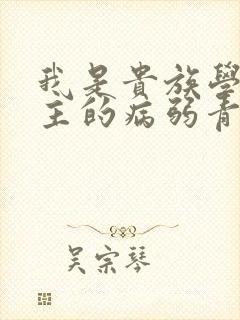 我是貴族學
主的病弱青
吳宗琴